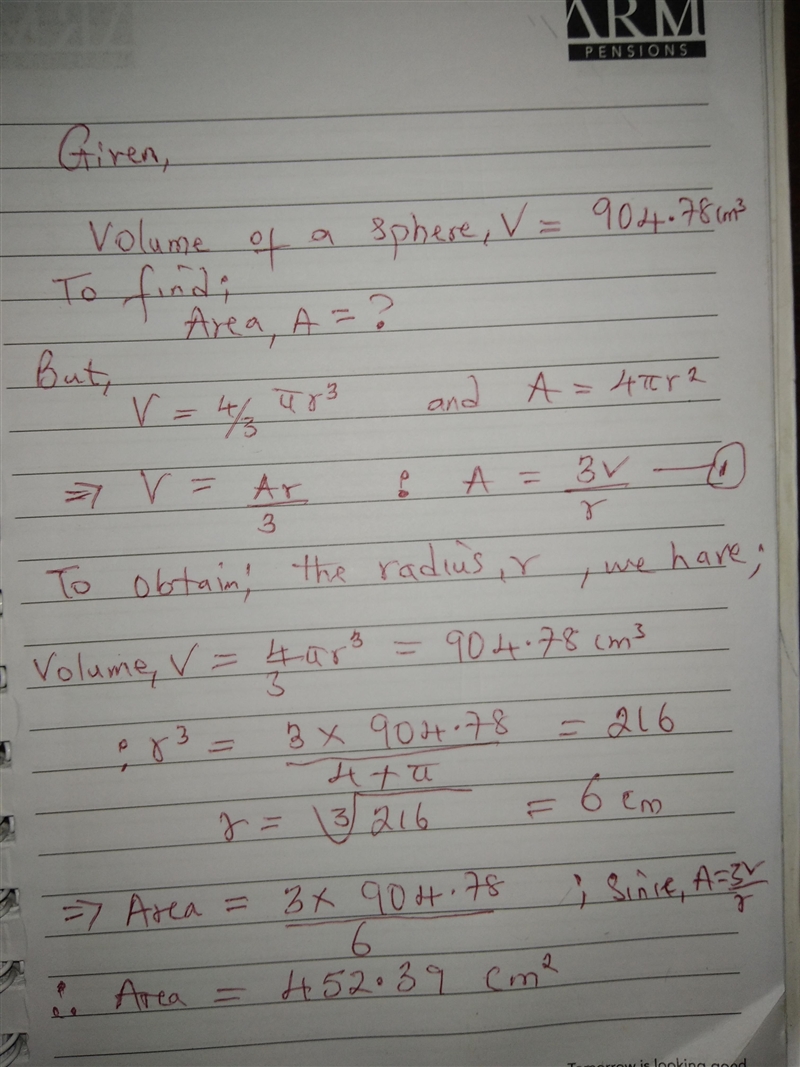 ARM
PENSIONS
Given,
Volume of a sphere, V = 904.78cm³
To find;
Area, A = ?
But,
V = 4/3 πr³ and A = 4πr²
⇒ V = Ar/3 : A = 3V/r — ①
To obtain; the radius, r, we have;
Volume, V = 4/3 πr³ = 904.78 cm³
: r³ = 3 × 904.78 / 4 + π = 216
r = ∛216 = 6 cm
⇒ Area = 3 × 904.78 / 6 ; Since, A = 3V/r
∴ Area = 452.39 cm²
Tomorrow is looking good